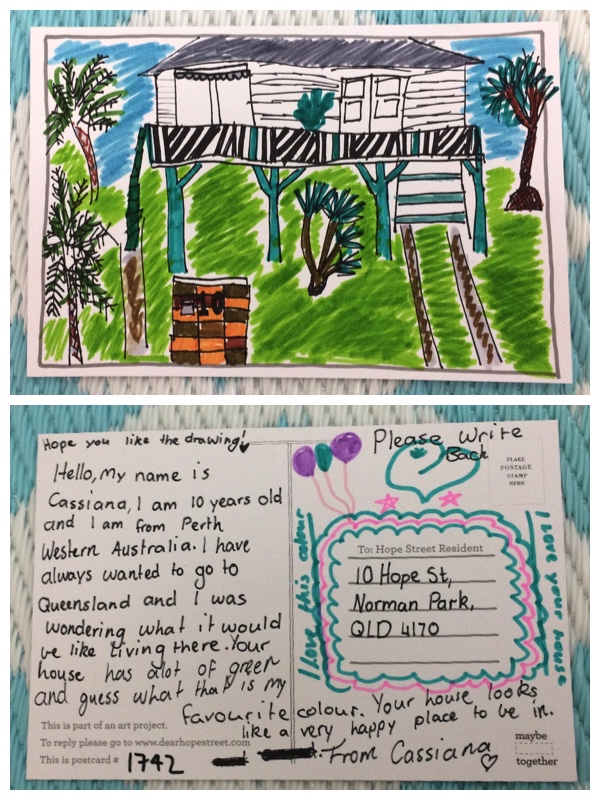 10
Hope you like the drawing!
Please Write
Back
PLACE
POSTAGE
STAMP
HERE
Hello, My name is
Cassiana, I am 10 years old
and I am from Perth
Western Australia. I have
always wanted to go to
Queensland and I was
wondering what it would
be like living there. Your
house has alot of green
and guess what that is my
favourite colour. Your house looks
like a very happy place to be in.
From Cassiana
I love this colour
To: Hope Street Resident
10 Hope St,
Norman Park,
QLD 4170
I love your house
This is part of an art project.
To reply please go to www.dearhopestreet.com
This is postcard # 1742
maybe
together